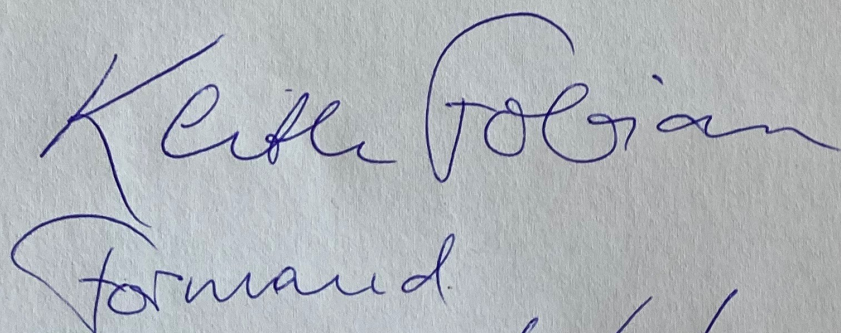 Keith Fobian
Formand.